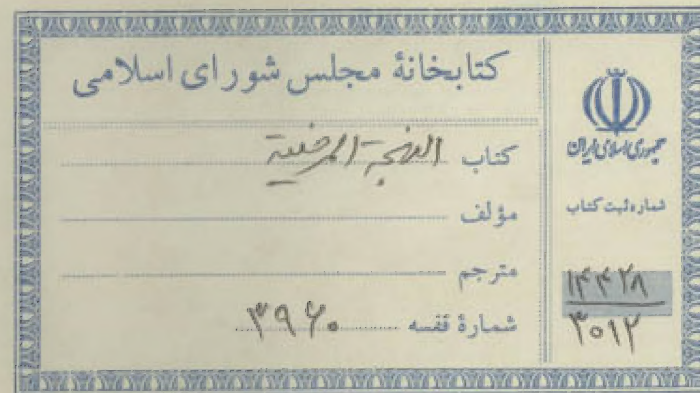 کتابخانهٔ مجلس شورای اسلامی
کتاب البهجة المرضية
مؤلف
مترجم
شمارهٔ قفسه ۳۹۶۰
جمهوری اسلامی ایران
شماره ثبت کتاب
۱۴۴۲۸
۳۰۱۲